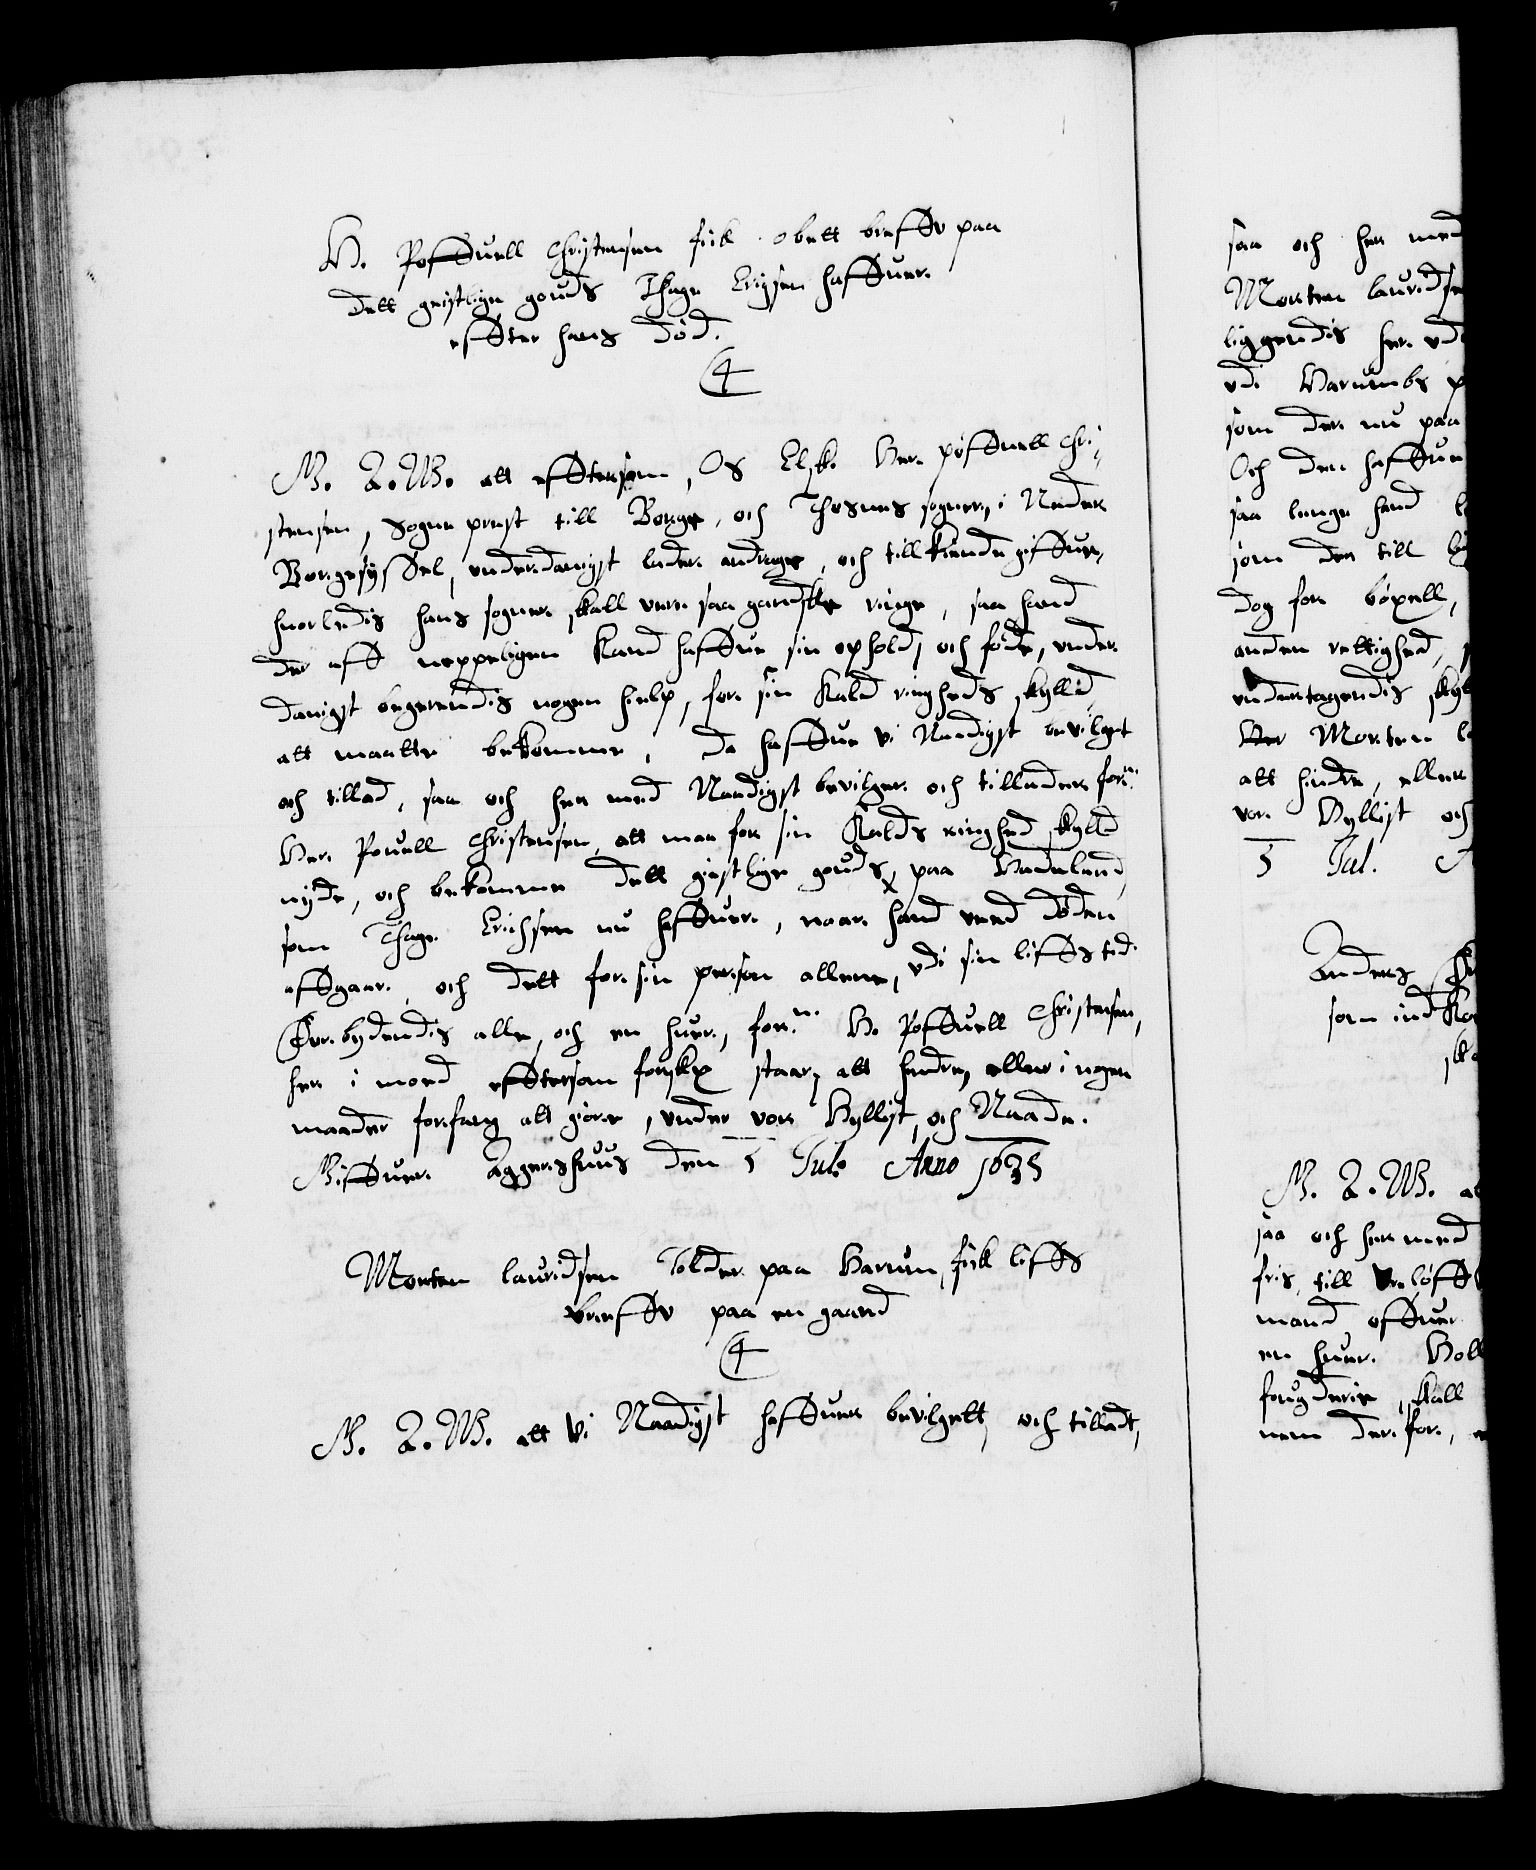 H. Poffuell Christensen fick obett breff paa
dett geistlige gouds Thage Erigsen haffuer.
effter hans død.
C4
G. A. W. att efftersom, Os Elsk. Her. poffuell Chri¬
stensen, Sogne prest till Borge, och Thosunes sogner, i Neder
Borgesyssel, underdanigst lader andrage, och tillkiende giffue,
huorledis hans sogner skall vere saa gandske ringe, saa hand
der aff neppeligen kand haffue sin ophold, och føde, under¬
danigst begerendis nogen hielp, for sin kald ringheds skyld,
att maatte bekomme, da haffue vi Naadigst bevilget
och tillad, saa och her med Naadigst bevilger och tillader forne
Her. Pouell Christensen, att maa for sin Kalds ringhed skyld
nyde, och bekomme dett gistlige gouds, paa
som Thage Erichsen nu haffuer, naar hand ved døden
affgaar, och dett for sin person allene, udi sin liffs tid.
Forbydendis alle, och en huer, forn. H. Poffuell Christensen,
her i mod efftersom forsk staar, att hindre, eller i nogen
maader forfang att giøre, under vor Hyllist, och Naade.
Giffuer Aggershuus den 5 Jul. Anno 1635
Morten lauridsen Tolder paa Harum, fick liffs
breff paa en gaard
C4
G. A. W. att Vi Naadigst haffuer bevilgett, och tilladt,
saa och her med
Morten lauridse
liggendis her ud
udi Harumbs p
som der nu paa
Och den haffue
saa lenge hand l
som der till
dog for bøxell,
anden rettighed,
undertagendis sky
Her Morten l
att hindre, eller
vor Hyllist och
5 Jul. A
Anders
som ind
sk
G. A. W. a
saa och her med
fri, till
mand offuer
en huer. Holl
fougderie, skall
nem derfor,